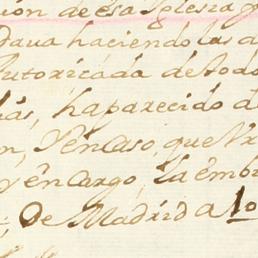 ción de esa Iglesia
Dava haciendo las d
utorizada de todo
ás, ha parecido d
n, y en caso, que V.
y encargo, la émbi
; De Madrid a 10